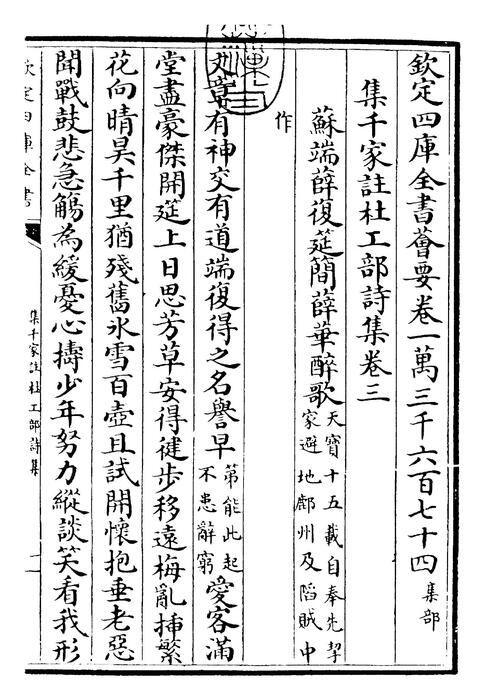 欽定四庫全書薈要卷一萬三千六百七十四 集部
集千家註杜工部詩集卷三
蘇端薛復筵簡薛華醉歌 天寶十五載自奉先挈
家避地鄜州及䧟賊中
作
文章有神交有道端復得之名譽早 第能此起
不患辭窮 愛客滿
堂盡豪傑開筵上日思芳草安得徤步移遠梅亂揷繁
花向晴昊千里猶殘舊氷雪百壺且試開懷抱垂老惡
聞戰鼓悲急觴為緩憂心擣少年努力縱談笑看我形
欽定四庫全書
集千家註杜工部詩集
一